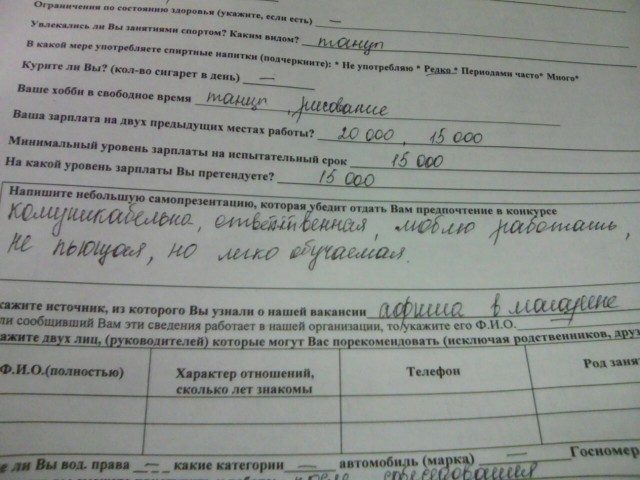 Ограничения по состоянию здоровья (укажите, если есть) —
Увлекались ли Вы занятиями спортом? Каким видом? танцы
В какой мере употребляете спиртные напитки (подчеркните): * Не употребляю * Редко * Периодами часто* Много*
Курите ли Вы? (кол-во сигарет в день) —
Ваше хобби в свободное время танцы, рисование
Ваша зарплата на двух предыдущих местах работы? 20 000, 15 000
Минимальный уровень зарплаты на испытательный срок 15 000
На какой уровень зарплаты Вы претендуете? 15 000
Напишите небольшую самопрезентацию, которая убедит отдать Вам предпочтение в конкурсе
комуникабельна, ответственная, люблю работать,
не пьющая, но легко обучаемая.
кажите источник, из которого Вы узнали о нашей вакансии афиша в магазине
ли сообщивший Вам эти сведения работает в нашей организации, то укажите его Ф.И.О.
кажите двух лиц, (руководителей) которые могут Вас порекомендовать (исключая родственников, друз
Ф.И.О.(полностью) Характер отношений, сколько лет знакомы Телефон Род заня
е ли Вы вод. права — какие категории — автомобиль (марка) — Госномер
после собеседования